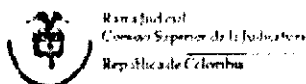 Rama Judicial
Consejo Superior de la Judicatura
República de Colombia